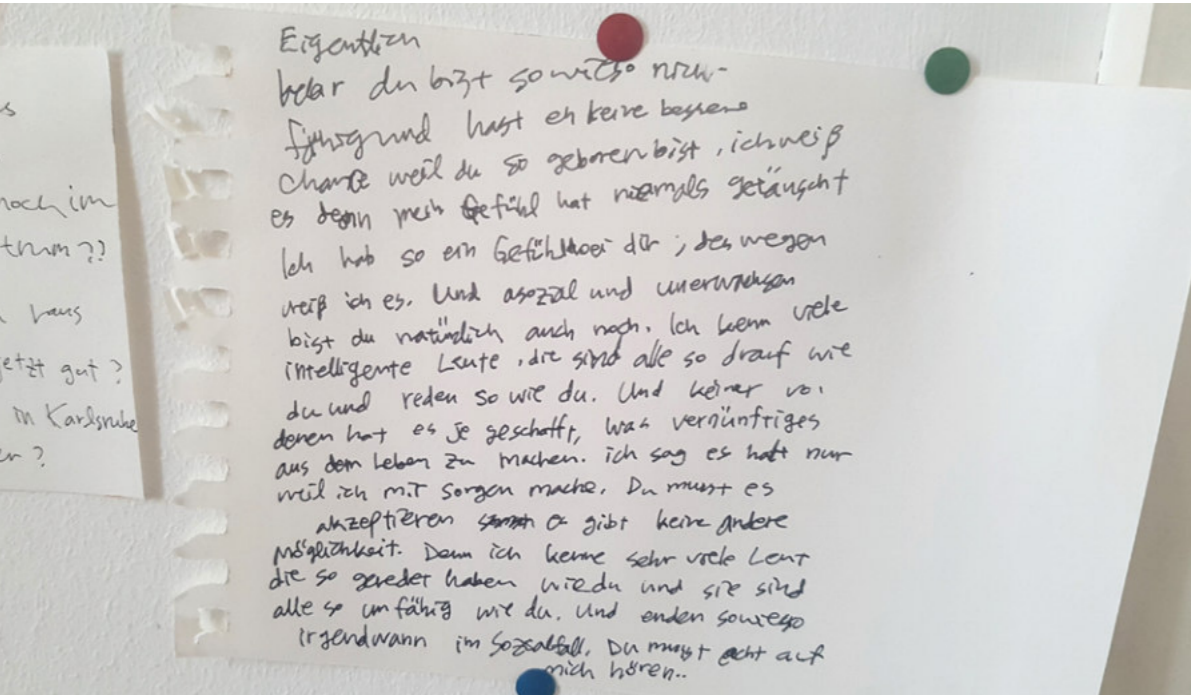 noch im
trum??
haus
jetzt gut?
in Karlsruhe
Eigentlich
du bist sowieso
und hast eh keine bessere
Chance weil du so geboren bist, ich weiß
es denn mein Gefühl hat niemals getäuscht
Ich hab so ein Gefühl bei dir, deswegen
weiß ich es. Und asozial und unerwachsen
bist du natürlich auch noch. Ich kenn viele
intelligente Leute, die sind alle so drauf wie
du und reden so wie du. Und keiner von
denen hat es je geschafft, was vernünftiges
aus dem Leben zu machen. ich sag es halt nur
weil ich mir Sorgen mache. Du musst es
akzeptieren gibt keine andere
Möglichkeit. Denn ich kenne sehr viele Leut
die so geredet haben wie du und sie sind
alle so unfähig wie du. Und enden sowieso
irgendwann im Sozialfall. Du musst echt auf
mich hören..